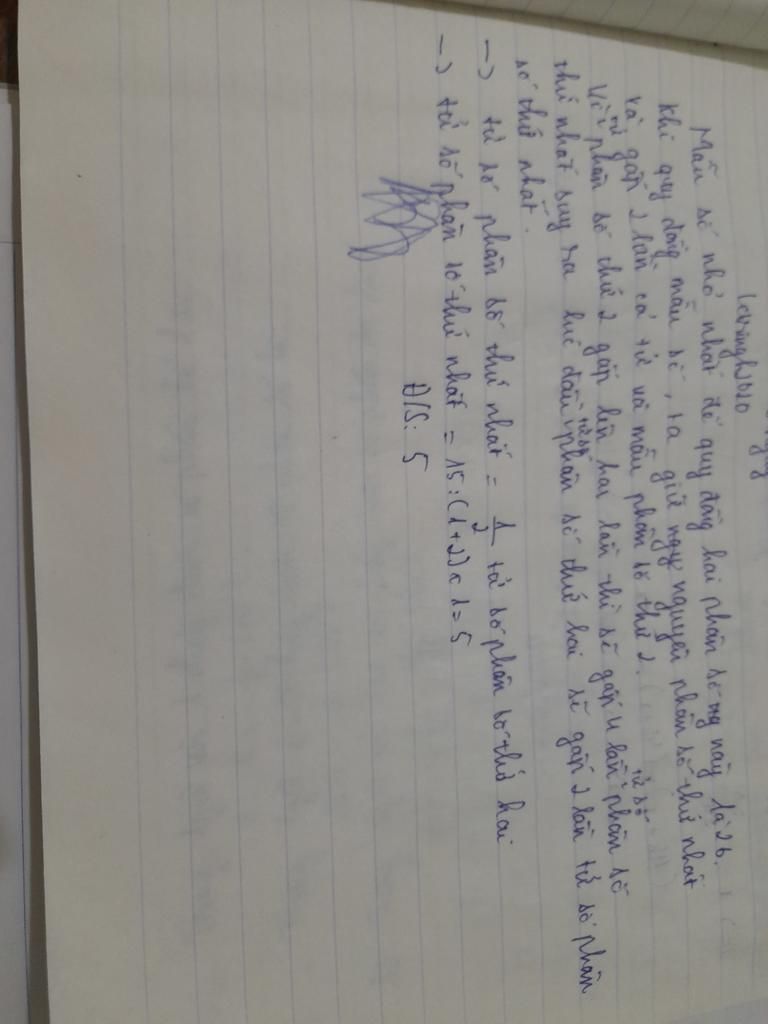 levinghi2010
Mẫu số nhỏ nhất để quy đồng hai phân số này là 26.
Khi quy đồng mẫu số, ta giữ nguyên phân số thứ nhất
và gấp 2 lần cả tử và mẫu phân số thứ 2.
Vì tử phân số thứ 2 gấp lên hai lần thì sẽ gấp 4 lần tử số phân số
thứ nhất suy ra lúc đầu tử số phân số thứ hai sẽ gấp 2 lần tử số phân
số thứ nhất.
-> tử số phân số thứ nhất = 1/2 tử số phân số thứ hai
-> tử số phân số thứ nhất = 15:(1+2)x1=5
Đ/S: 5